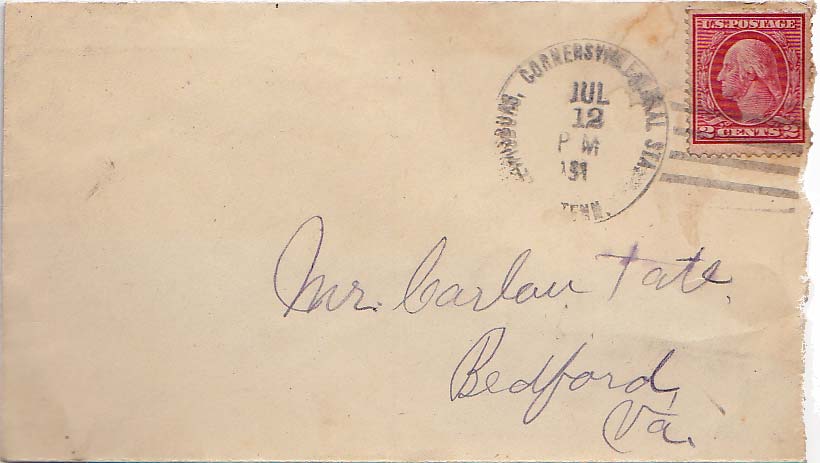 U.S. POSTAGE
2 CENTS 2
CORNERSVILLE RURAL STA.
JUL
12
P M
TENN.
Mr. Carlow Tate,
Bedford,
Va.